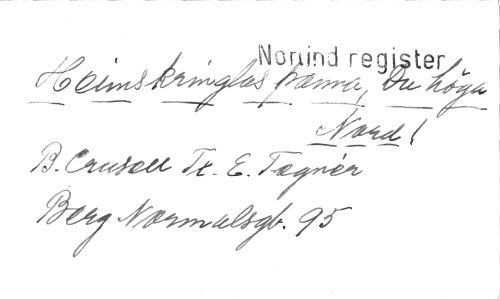 Norind register
Heimskringlas panna, Du höga
Nord!
B. Crusell Tx. E. Tegnér
Berg Normalsgb. 95